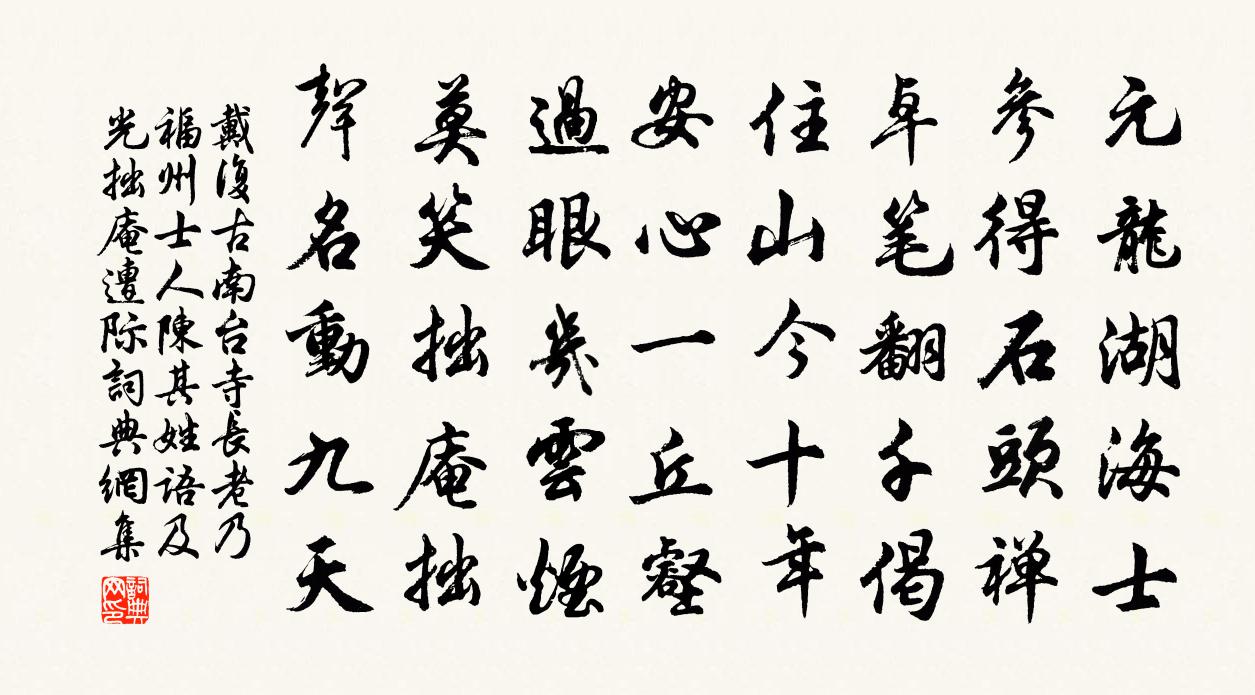 元龍湖海士
參得石頭禅
卓笔翻千偈
住山今十年
安心一丘壑
過眼幾雲煙
莫笑拙庵拙
聲名動九天
戴復古南台寺長老乃
福州士人陳其姓語及
光拙庵遭际詞典網集
詞典网印